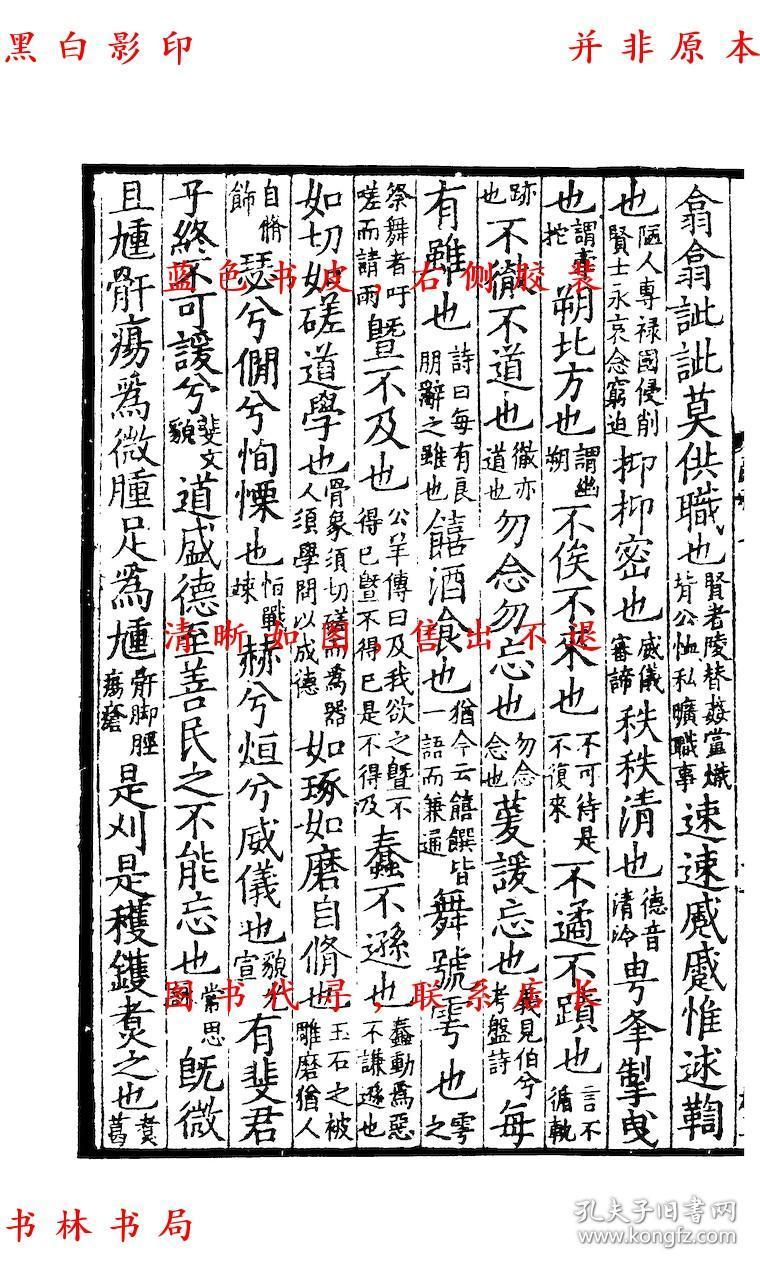 黑白影印 并非原本
翕翕訿訿莫供職也賢者陵替姦黨熾背公恤私曠職事速速蹙蹙惟逑鞫
也陋人專祿國侵削賢士永哀念窮迫抑抑密也威儀審諦秩秩清也德音清泠甹夆掣曳
也謂牽拕朔北方也謂幽朔不俟不來也不可待是不復來不遹不蹟也言不循軌
跡也不徹不道也徹亦道也勿念勿忘也勿念念也萲諼忘也義見伯兮考盤詩每
有雖也詩曰每有良朋辭之雖也饎酒食也猶今云饎饌皆一語而兼通舞號雩也雩之
祭舞者吁嗟而請雨曁不及也公羊傳曰及我欲之曁不得已曁不得已是不得及蠢不遜也蠢動爲惡不謙遜也
如切如磋道學也骨象須切磋而爲器人須學問以成德如琢如磨自脩也玉石之被雕磨猶人
自脩飾瑟兮僩兮恂慄也怕戰竦赫兮烜兮威儀也貌光宣有斐君
子終不可諼兮斐文貌道盛德至善民之不能忘也常思詠旣微
且尰骭瘍爲微腫足爲尰骭脚脛瘍瘡是刈是穫鑊煑之也煑葛
蓝色书皮，右侧胶装
清晰如图，售出不退
图书代寻，联系店长
书林书局
孔夫子旧书网
www.kongfz.com